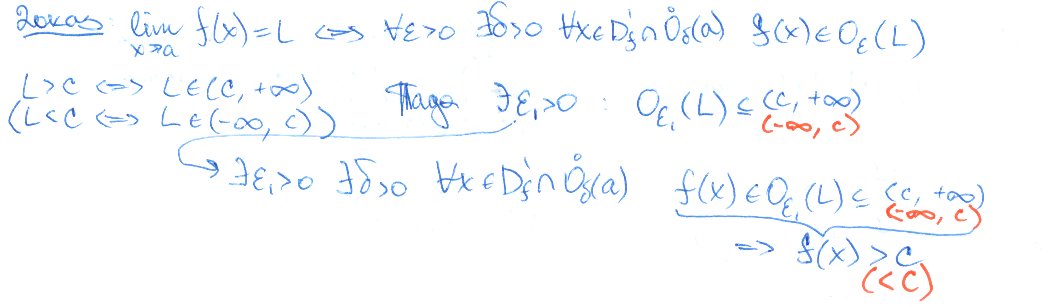 Доказ: lim x→a f(x) = L ⟺ ∀ε>0 ∃δ>0 ∀x∈D_f∩O̊_δ(a) f(x)∈O_ε(L)
L>c ⟺ L∈(c, +∞)
(L<c ⟺ L∈(-∞, c))
Тада ∃ε₁>0 : O_ε₁(L) ⊆ (c, +∞)
(-∞, c)
∃ε₁>0 ∃δ>0 ∀x∈D_f∩O̊_δ(a) f(x)∈O_ε₁(L) ⊆ (c, +∞)
(-∞, c)
⟹ f(x) > c
(< c)